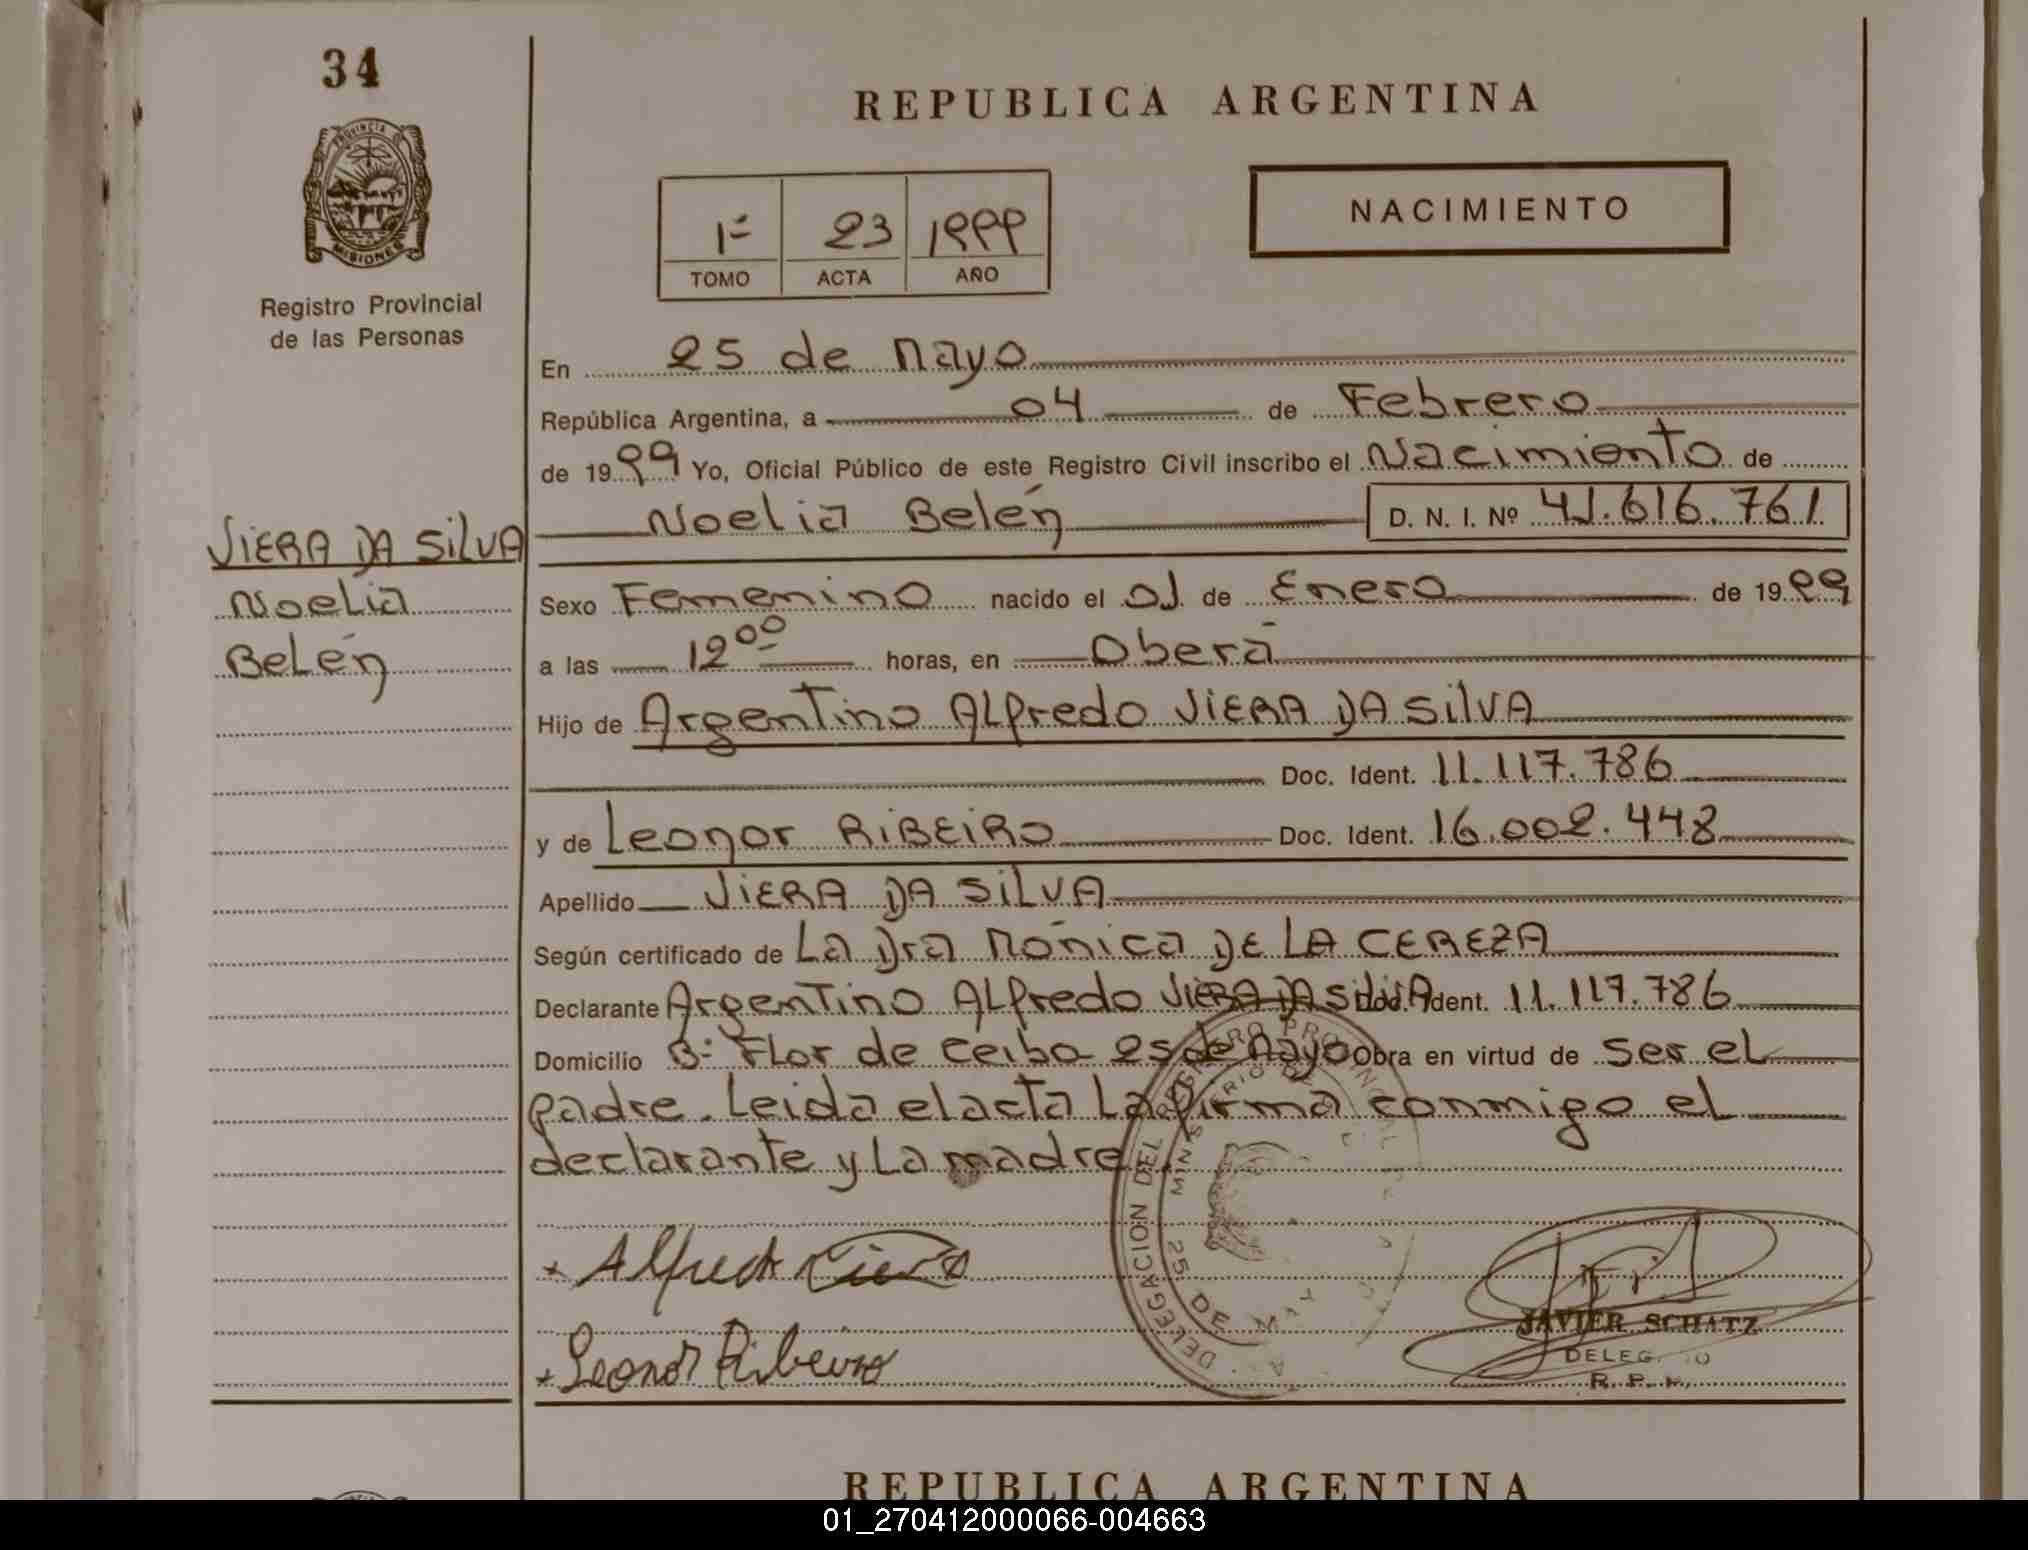 34
PROVINCIA DE MISIONES
Registro Provincial
de las Personas
REPUBLICA ARGENTINA
1º 23 1999
TOMO ACTA AÑO
NACIMIENTO
En 25 de Mayo
República Argentina, a 04 de Febrero
de 1999 Yo, Oficial Público de este Registro Civil inscribo el Nacimiento de
Noelia Belén D. N. I. Nº 41.616.761
VIERA DA SiLVA
Noelia
Belén
Sexo Femenino nacido el 01 de Enero de 1999
a las 12 00 horas, en Oberá
Hijo de Argentino ALfredo VIERA DA SilVA
Doc. Ident. 11.117.786
y de Leonor RiBEiRo Doc. Ident. 16.002.448
Apellido VIERA DA SiLVA
Según certificado de La Dra Mónica DE LA CEREZA
Declarante Argentino ALfredo VIERA DA SilVA Doc. Ident. 11.117.786
Domicilio Bº Flor de Ceibo 25 de Mayo Obra en virtud de ser el
padre. Leida el acta La firma conmigo el
declarante y La madre.
Alfredo Viera
Leonor Ribeiro
DELEGACION DEL REGISTRO PROVINCIAL
25 DE MAYO
JAVIER SCHATZ
DELEGADO
R. P. P.
REPUBLICA ARGENTINA
01_270412000066-004663